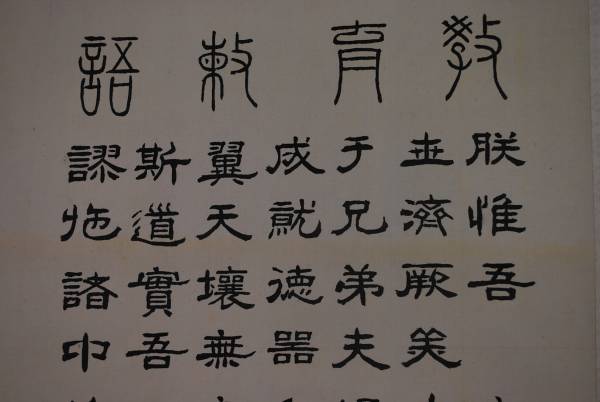 教育敕語
朕惟吾
世濟厥美
于兄弟夫
成就徳器
翼天壤無
斯道實吾
謬施諸中